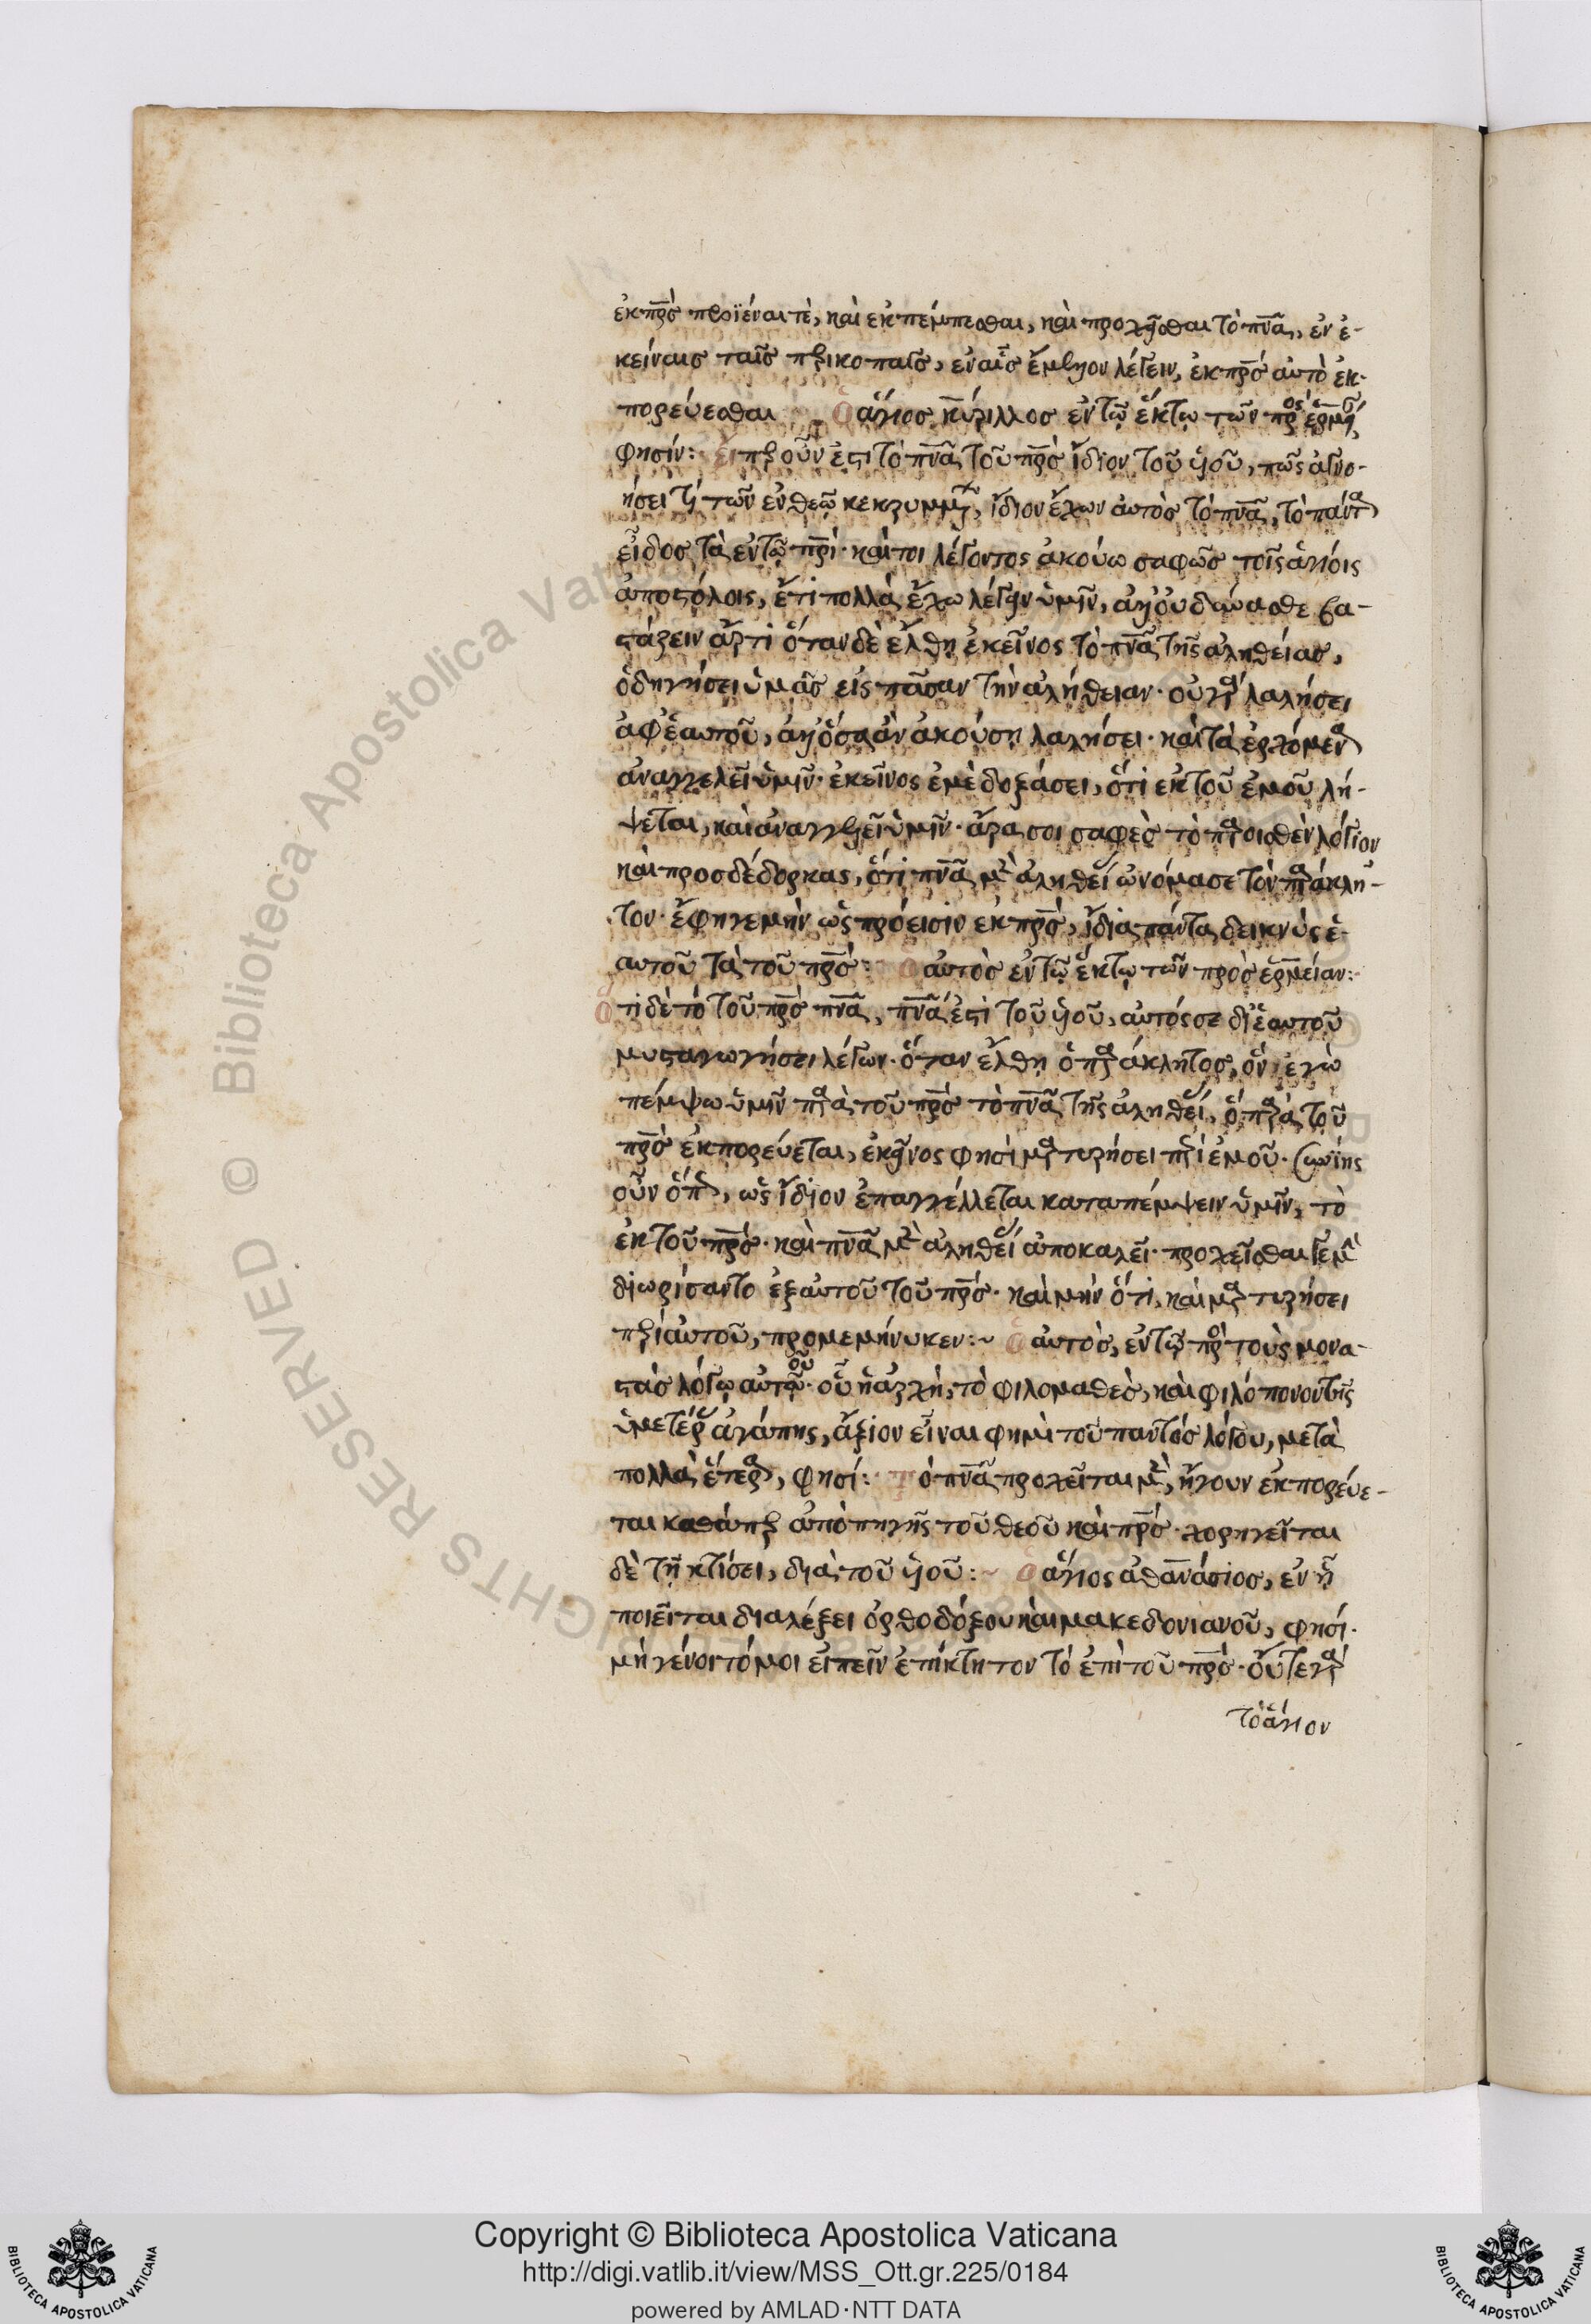 ἐκ πρ̅ς προϊέναι τὲ, καὶ ἐκπέμπεσθαι, καὶ προχεῖσθαι τὸ πν̅α, ἐν ἐ-
κείναις ταῖς περικοπαῖς, ἐν αἷς ἔμελλον λέγειν, ἐκ πρ̅ς αὐτὸ ἐκ-
πορεύεσθαι Ὁ ἅγιος κύριλλος ἐν τῷ ἕκτῳ τῶν πρὸς ἑρμ
φησίν: Εἴπερ οὖν ἐστι τὸ πν̅α τοῦ πρ̅ς ἴδιον τοῦ υἱοῦ, πῶς ἀγνο-
ήσει τί τῶν ἐν θεῷ κεκρυμμ, ἴδιον ἔχων αὐτὸς τὸ πν̅α, τὸ πάντα
εἶδος τὰ ἐν τῷ πρ̅ι· καίτοι λέγοντος ἀκούω σαφῶς τοῖς ἁγίοις
ἀποστόλοις, ἔτι πολλὰ ἔχω λέγειν ὑμῖν, ἀλλ' οὐ δύνασθε βα-
στάζειν ἄρτι ὅταν δὲ ἔλθῃ ἐκεῖνος τὸ πν̅α τῆς ἀληθείας,
ὁδηγήσει ὑμᾶς εἰς πᾶσαν τὴν ἀλήθειαν· οὐ γὰρ λαλήσει
ἀφ' ἑαυτοῦ, ἀλλ' ὅσα ἂν ἀκούσῃ λαλήσει· καὶ τὰ ἐρχόμενα
ἀναγγελεῖ ὑμῖν· ἐκεῖνος ἐμὲ δοξάσει, ὅτι ἐκ τοῦ ἐμοῦ λή-
ψεται, καὶ ἀναγγελεῖ ὑμῖν· ἆρα σοι σαφὲς τὸ παροισθὲν λόγιον
καὶ προσδέδορκας, ὅτι πν̅α μὲν ἀληθεί ὠνόμασε τὸν παράκλη-
τον· ἔφη γε μὴν ὡς πρόεισιν ἐκ πρ̅ς, ἴδια πάντα δεικνὺς ἑ-
αυτοῦ τὰ τοῦ πρ̅ς: Ὁ αὐτὸς ἐν τῷ ἕκτῳ τῶν πρὸς ἑρμείαν:
Ὅτι δὲ τὸ τοῦ πρ̅ς πν̅α, πν̅α ἐστι τοῦ υἱοῦ, αὐτός σε δι' ἑαυτοῦ
μυσταγωγήσει λέγων· ὅταν ἔλθῃ ὁ παράκλητος, ὃν ἐγὼ
πέμψω ὑμῖν παρὰ τοῦ πρ̅ς τὸ πν̅α τῆς ἀληθεί, ὃ παρὰ τοῦ
πρ̅ς ἐκπορεύεται, ἐκεῖνος φησὶ μαρτυρήσει περὶ ἐμοῦ· συνίης
οὖν ὅπ, ὡς ἴδιον ἐπαγγέλλεται καταπέμψειν ὑμῖν, τὸ
ἐκ τοῦ πρ̅ς· καὶ πν̅α μὲν ἀληθεί ἀποκαλεῖ· προχεῖσθαι γε μὴν
διωρίσαντο ἐξ αὐτοῦ τοῦ πρ̅ς· καὶ μὴν ὅτι, καὶ μαρτυρήσει
περὶ αὐτοῦ, προμεμήνυκεν:~ Ὁ αὐτὸς, ἐν τῷ πρὸς τοὺς μονα-
στὰς λόγῳ αὐτοῦ· οὗ ἡ ἀρχὴ, τὸ φιλομαθὲς, καὶ φιλόπονον τῆς
ὑμετέρ ἀγάπης, ἄξιον εἶναι φημὶ τοῦ παντὸς λόγου, μετὰ
πολλὰ ἕτερα, φησί: Τὸ πν̅α προχεῖται μὲν, ἤγουν ἐκπορεύε-
ται καθάπερ ἀπὸ πηγῆς τοῦ θεοῦ καὶ πρ̅ς· χορηγεῖται
δὲ τῇ κτίσει, διὰ τοῦ υἱοῦ:~ Ὁ ἅγιος ἀθανάσιος, ἐν ᾗ
ποιεῖται διαλέξει ὀρθοδόξου καὶ μακεδονιανοῦ, φησί·
μὴ γένοιτό μοι εἰπεῖν ἐπίκτητον τὸ ἐπὶ τοῦ πρ̅ς· οὔτε γὰρ
τὸ ἅγιον
Copyright © Biblioteca Apostolica Vaticana
http://digi.vatlib.it/view/MSS_Ott.gr.225/0184
powered by AMLAD·NTT DATA
BIBLIOTECA APOSTOLICA VATICANA
BIBLIOTECA APOSTOLICA VATICANA